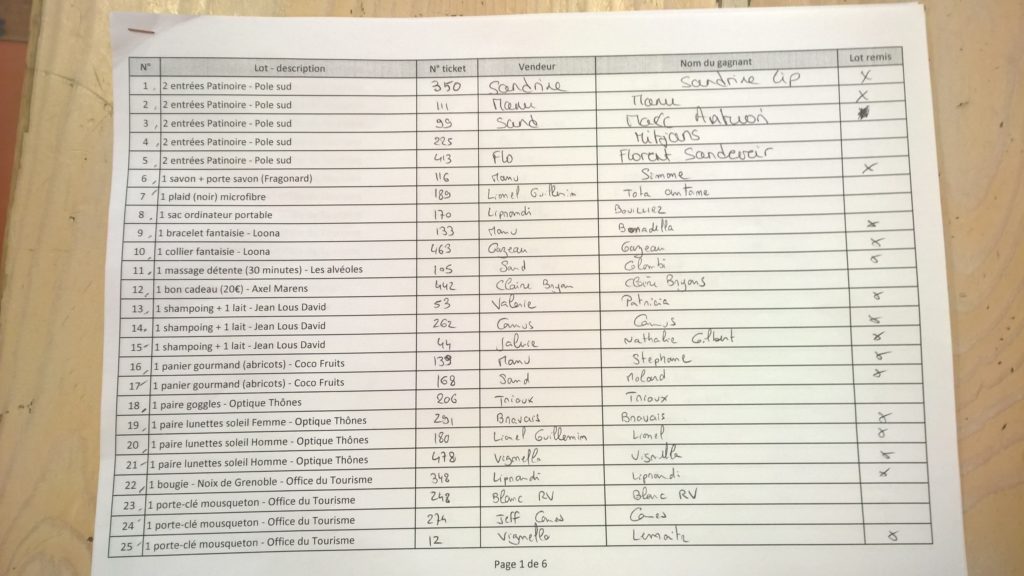 N° Lot - description N° ticket Vendeur Nom du gagnant Lot remis
1 2 entrées Patinoire - Pole sud 350 Sandrine Sandrine Lip X
2 2 entrées Patinoire - Pole sud 111 Manu Manu X
3 2 entrées Patinoire - Pole sud 99 Sand Marc
4 2 entrées Patinoire - Pole sud 225 Mitjans
5 2 entrées Patinoire - Pole sud 413 Flo Florent
6 1 savon + porte savon (Fragonard) 116 Manu Simone X
7 1 plaid (noir) microfibre 189 Lionel Guillemin
8 1 sac ordinateur portable 170 Liprandi
9 1 bracelet fantaisie - Loona 133 Manu X
10 1 collier fantaisie - Loona 463 Gazeau Gazeau X
11 1 massage détente (30 minutes) - Les alvéoles 105 Sand Colombi X
12 1 bon cadeau (20€) - Axel Marens 442 Claire Claire
13 1 shampoing + 1 lait - Jean Lous David 53 Valerie Patricia X
14 1 shampoing + 1 lait - Jean Lous David 262 Camus Camus X
15 1 shampoing + 1 lait - Jean Lous David 44 Nathalie Gilbert X
16 1 panier gourmand (abricots) - Coco Fruits 139 Manu Stephane X
17 1 panier gourmand (abricots) - Coco Fruits 168 Sand Moland X
18 1 paire goggles - Optique Thônes 206 Trioux Trioux
19 1 paire lunettes soleil Femme - Optique Thônes 291 Bravais Bravais X
20 1 paire lunettes soleil Homme - Optique Thônes 180 Lionel Guillemin Lionel X
21 1 paire lunettes soleil Homme - Optique Thônes 478 Vignello Vignello X
22 1 bougie - Noix de Grenoble - Office du Tourisme 348 Liprandi Liprandi X
23 1 porte-clé mousqueton - Office du Tourisme 248 Blanc RV Blanc RV
24 1 porte-clé mousqueton - Office du Tourisme 274 Jeff
25 1 porte-clé mousqueton - Office du Tourisme 12 Vignello Lemaitre X
Page 1 de 6